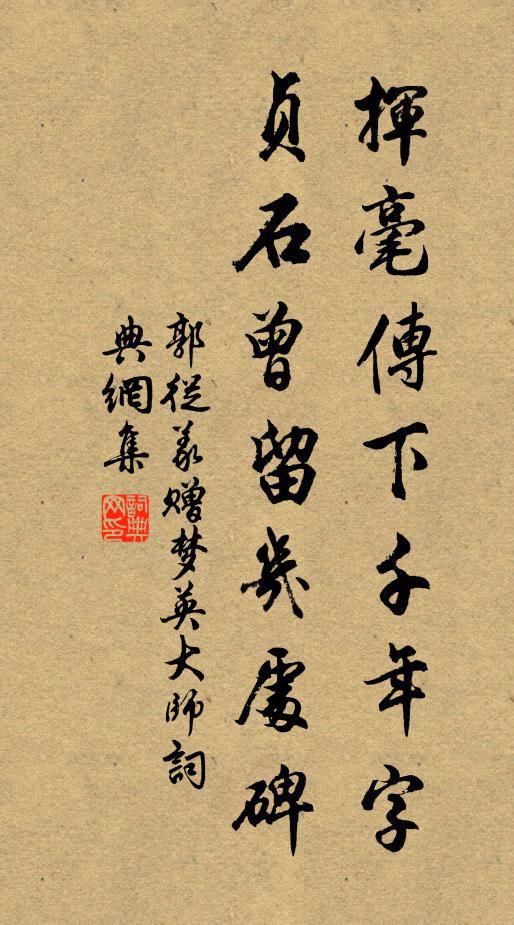 揮毫傳下千年字
貞石曾留幾處碑
郭從義贈梦英大師詞
典網集
詞典网印